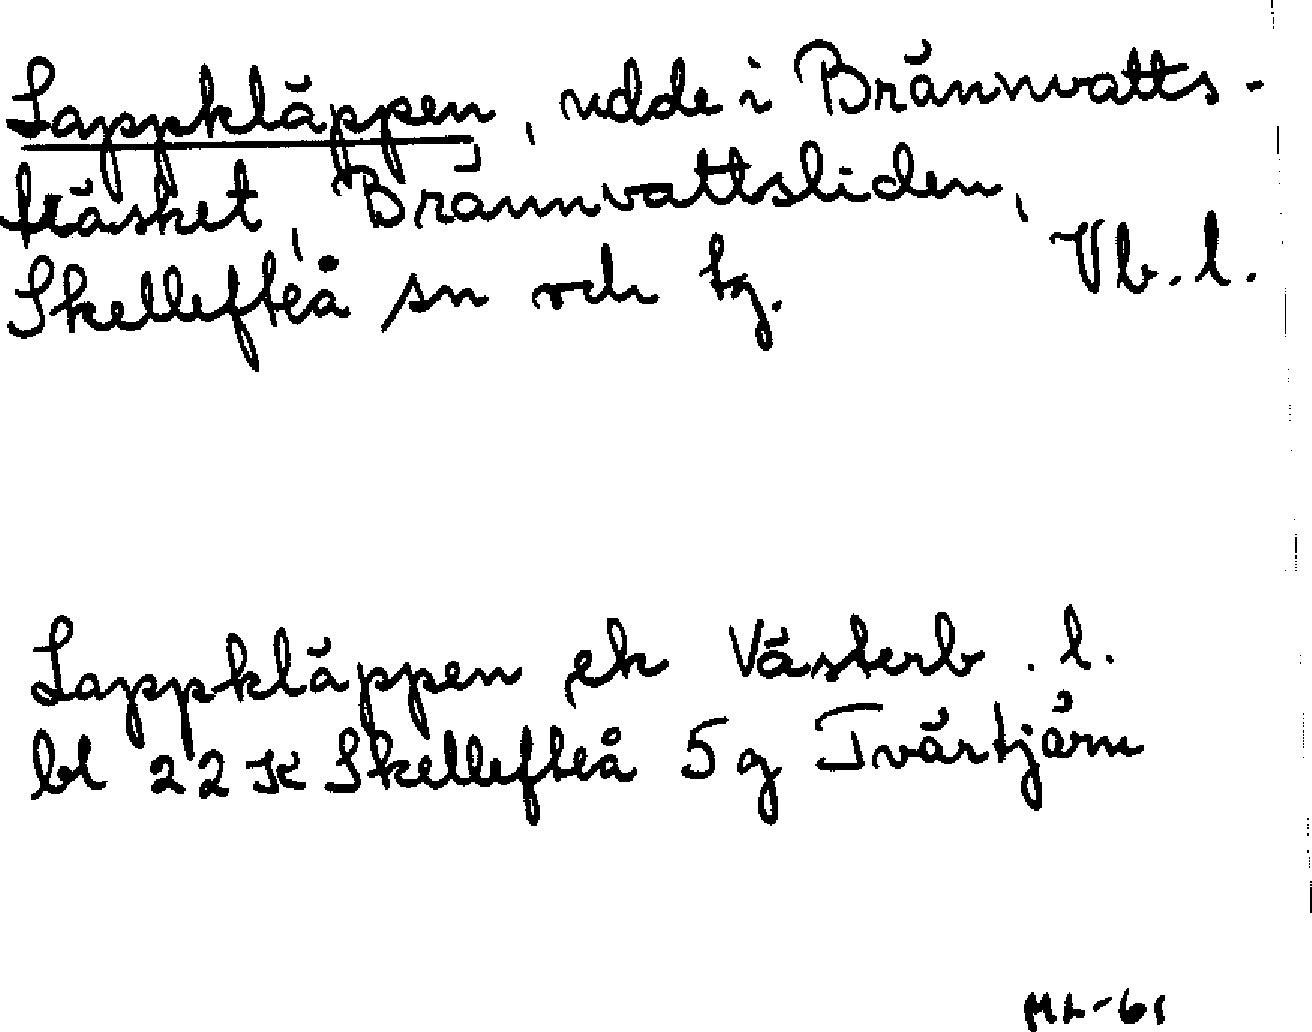 Lappkläppen, udde i Brännvatts-
träsket, Brännvattsliden,
Skellefteå sn och tg. Vb. l.
Lappkläppen ek Västerb. l.
bl 22 K Skellefteå 5 g Tvärtjärn
ML-61